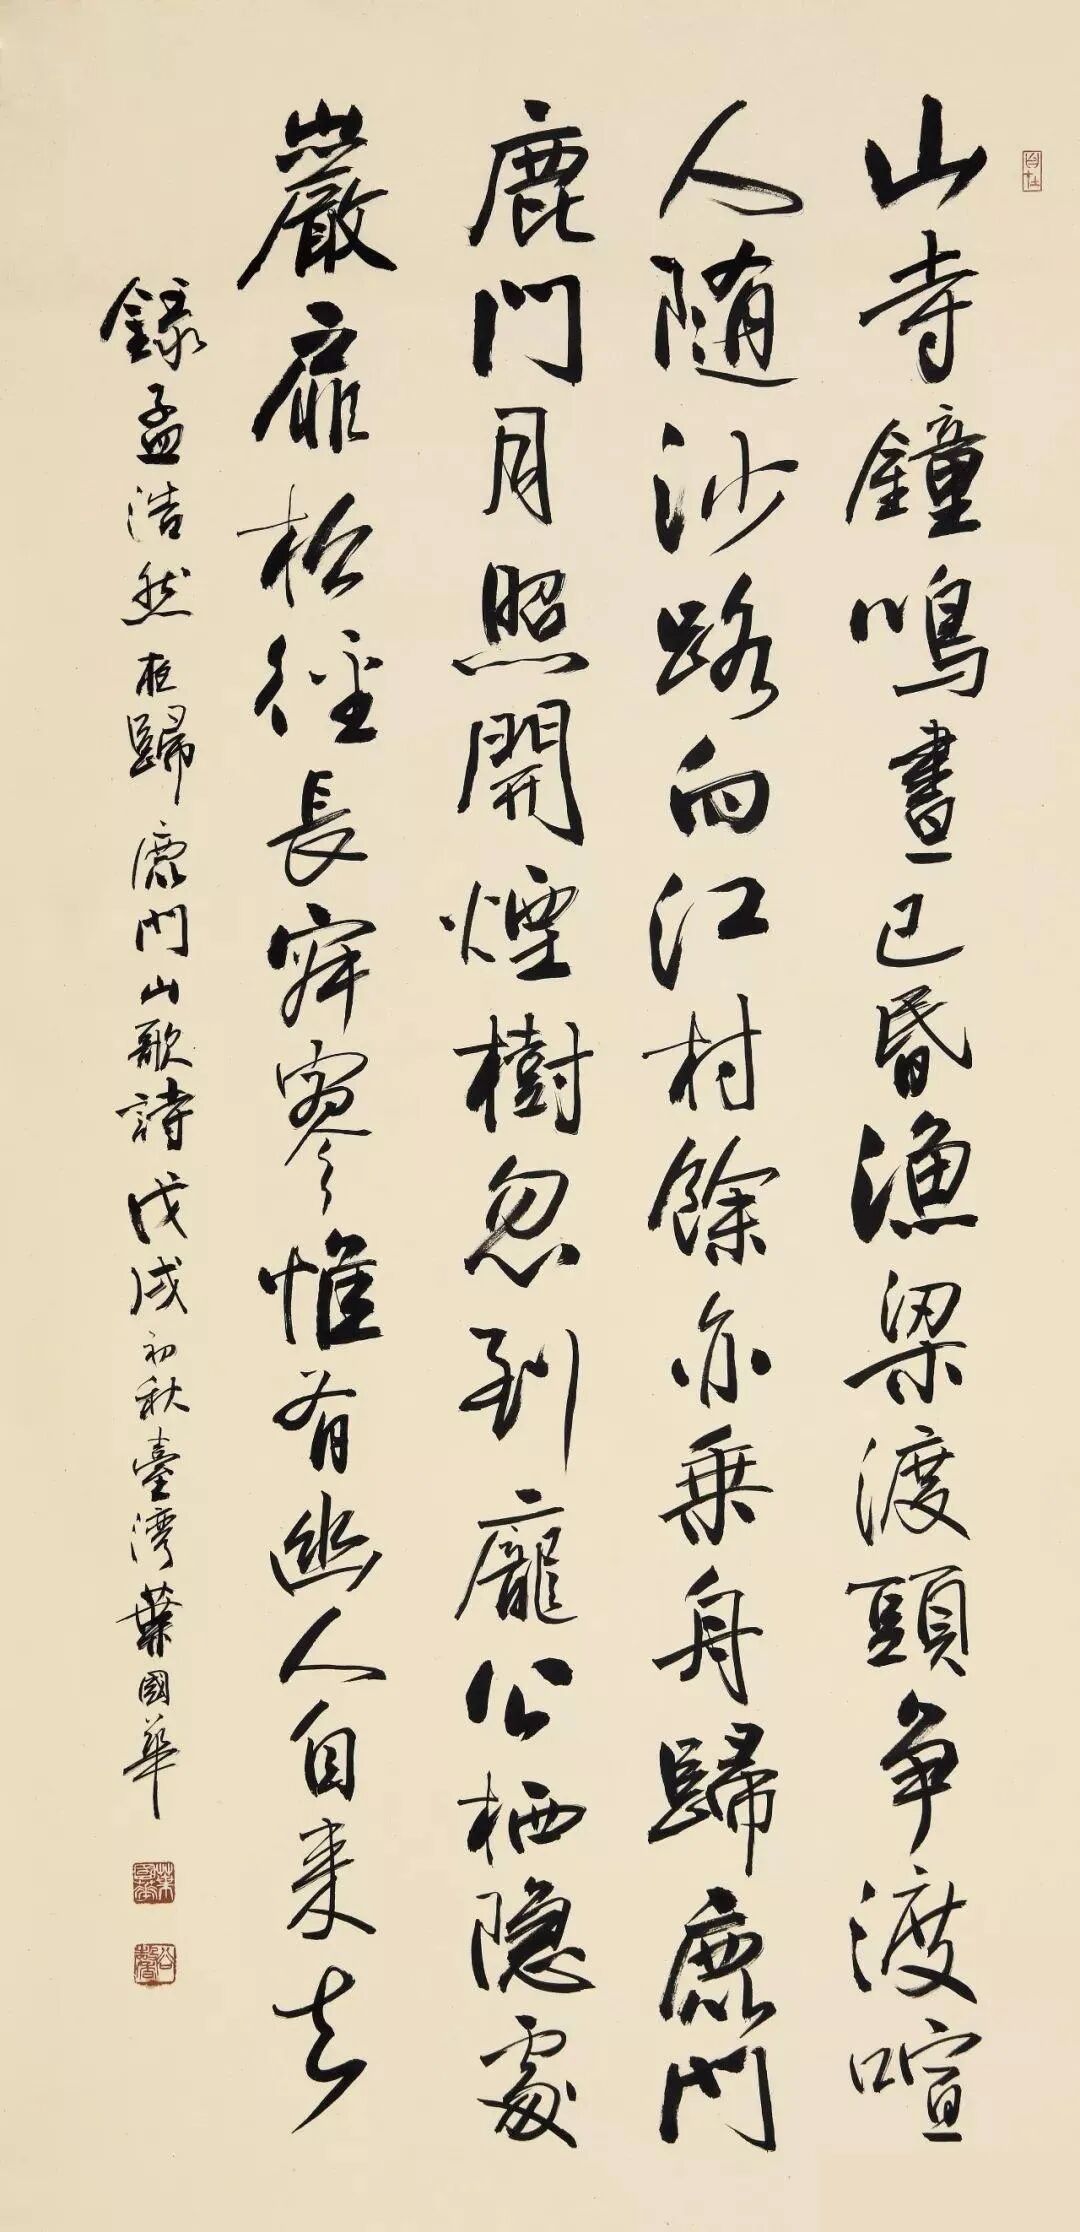 自在
山寺鐘鳴晝已昏漁梁渡頭争渡喧
人随沙路向江村餘亦乗舟歸鹿門
鹿門月照開煙樹忽到龐公栖隐處
巖扉松徑長寂寥惟有幽人自来去
錄孟浩然夜歸鹿門山歌詩戊戌初秋臺灣葉國華
葉國華